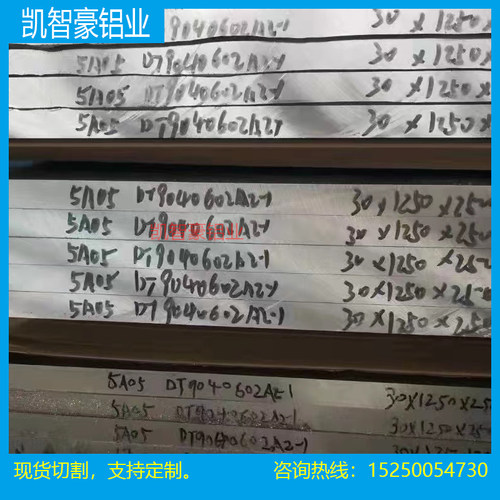 凯智豪铝业
9040602A2-1 30×1250×
5A05 DT9040602A2-1 30×1250×
5A05 DT9040602A2-1 30×1250×
5A05 DT9040602A2-1 30×1250×
凯智豪铝业
5A05 DT9040602A2-1 30×1250×250
5A05 DT9040602A2-1 30×1250×250
5A05 DT9040602A2-1 30×1250×250
5A05 DT9040602A2-1 30×1250×250
5A05 DT9040602A2-1 30×1250×250
5A05 DT9040602A2-1 30×1250×25
5A05 DT9040602A2-1 30×1250×25
5A05 DT9040602A2-1 30×1250×2
现货切割，支持定制。 咨询热线：15250054730